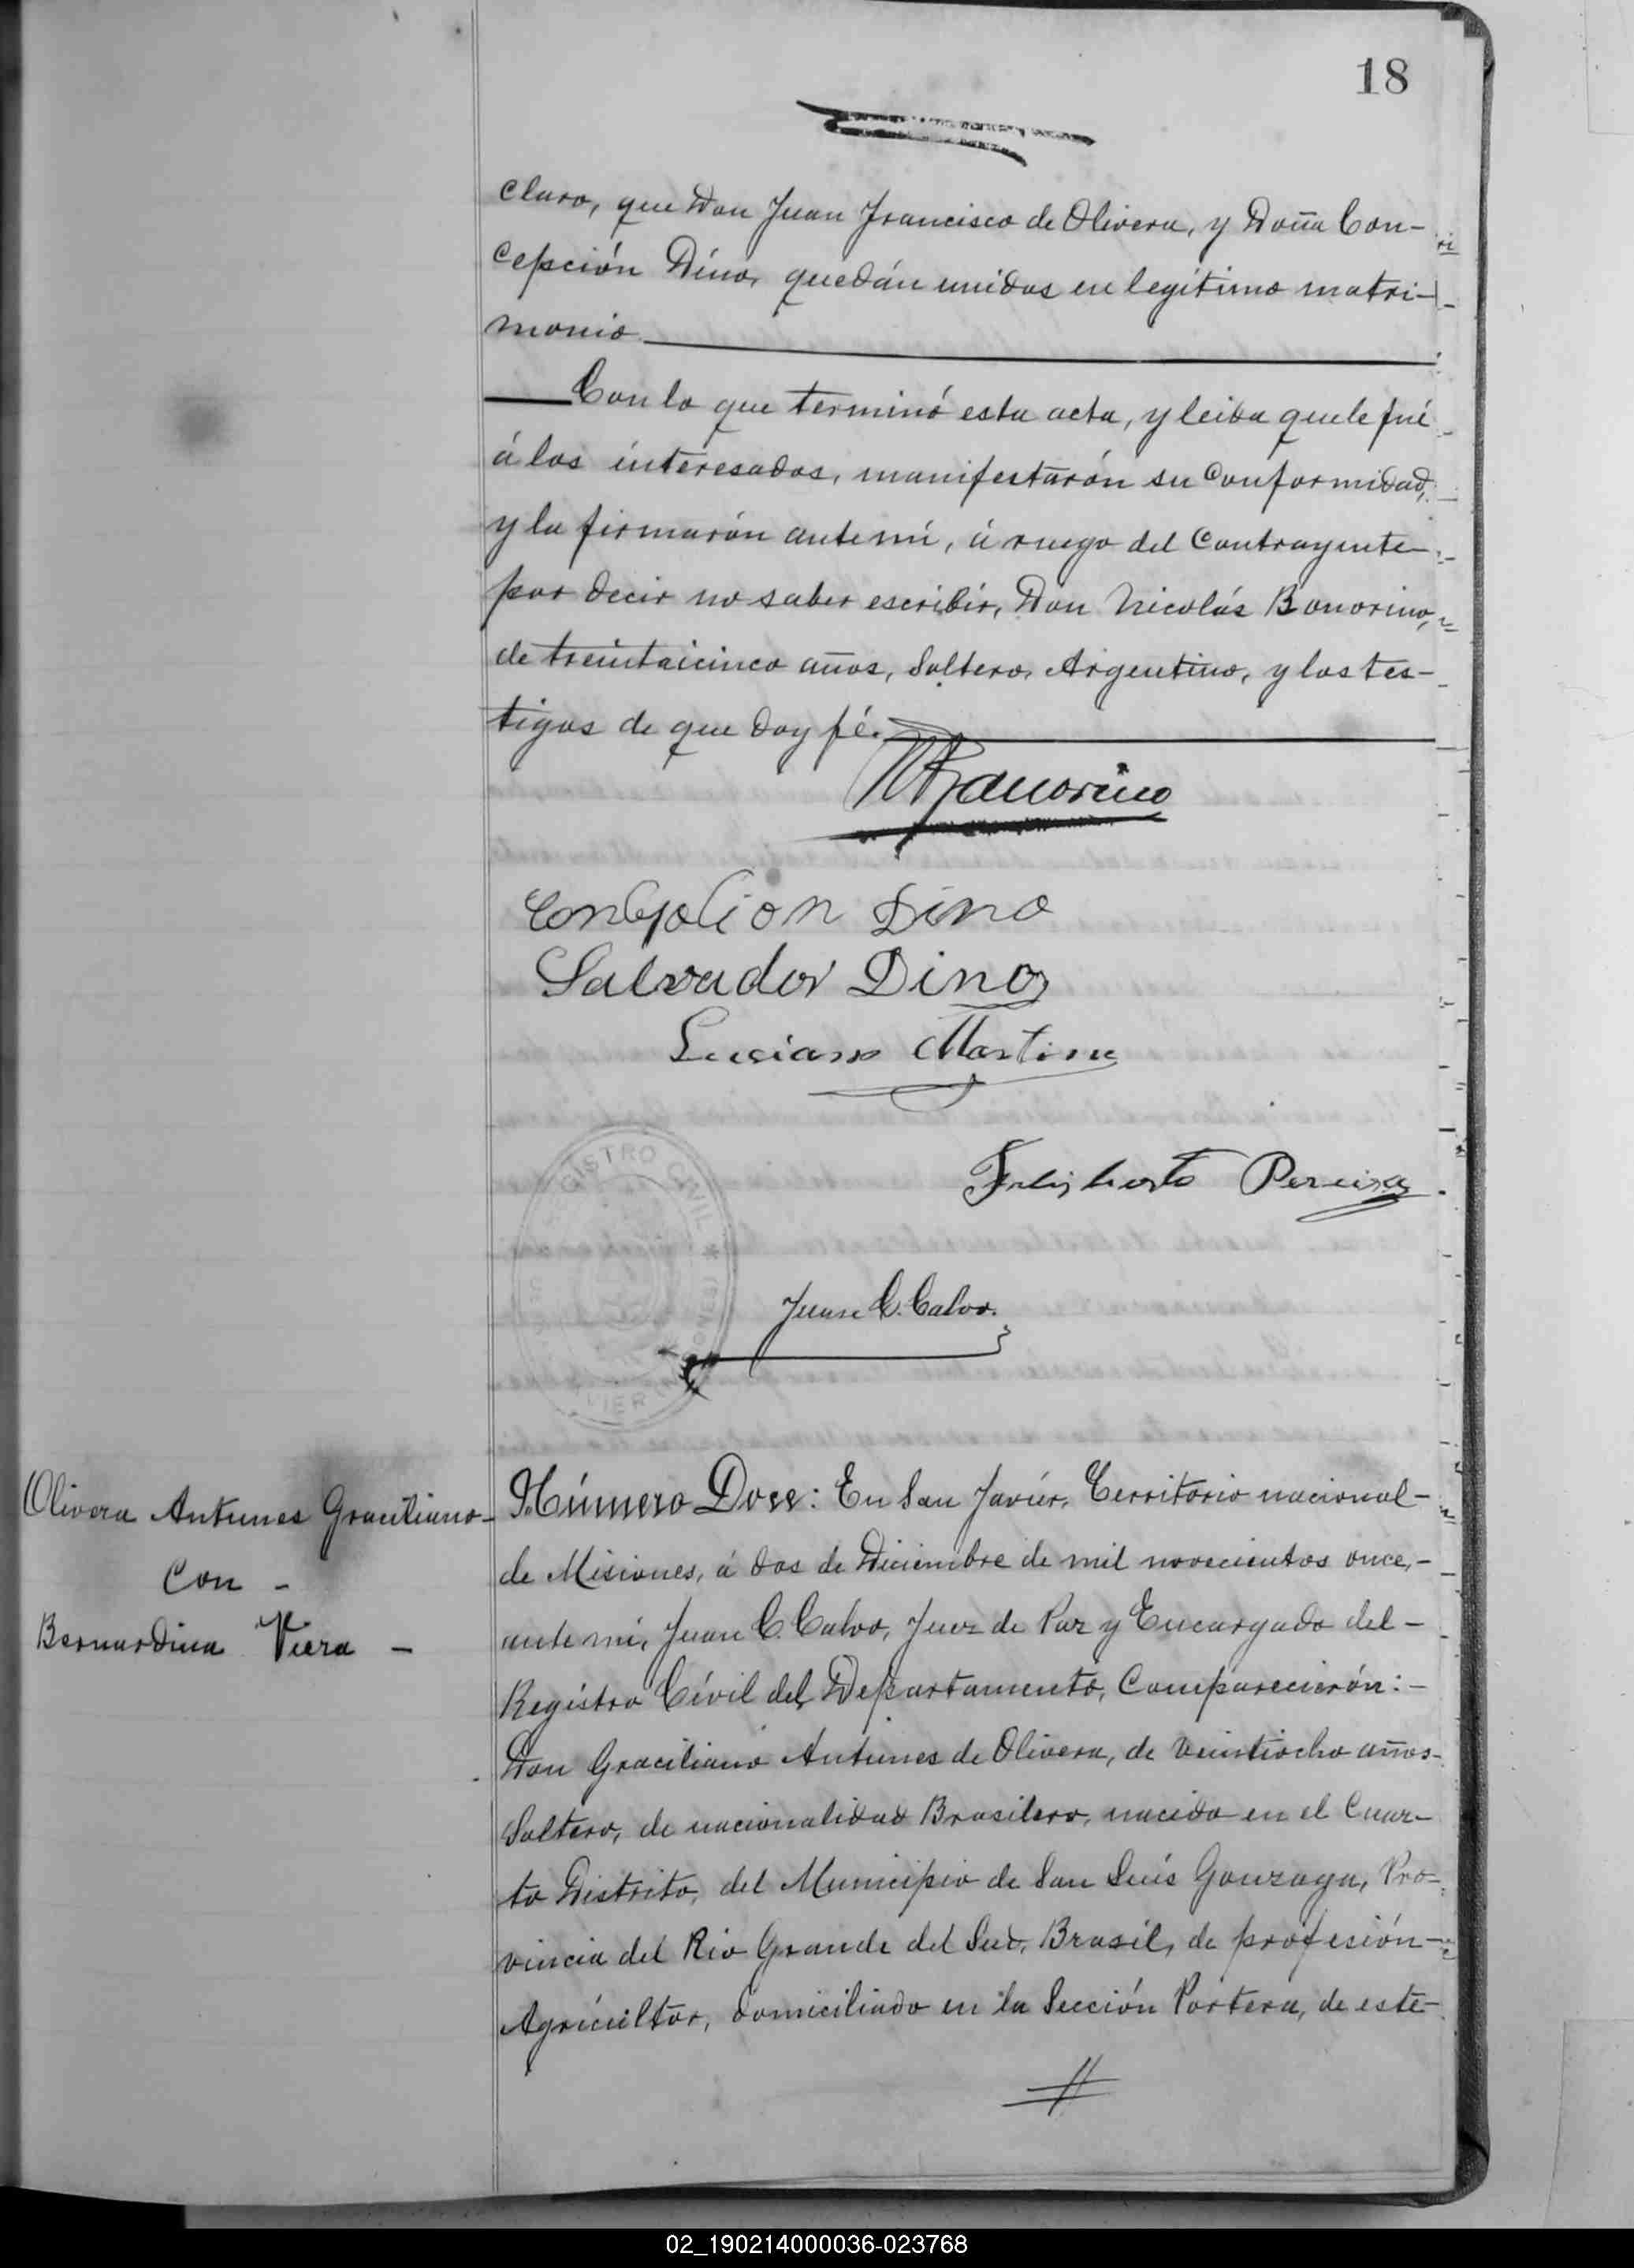 18
claro, que Don Juan Francisco de Olivera, y Doña Con-
cepción Díno, quedán unidos en legítimo matri-
monio
Con lo que terminó esta acta, y leida que le fué
á los interesados, manifestarón su conformidad,
y la firmarón ante mí, á ruego del Contrayente
por decir no saber escribir, Don Nicolás Bonorino,
de treintaicinco años, Soltero, Argentino, y los tes-
tigos de que doy fé.
NBonorino
Concepcion Dino
Salvador Dino
Luciano Martins
Felisberto Pereira
REGISTRO CIVIL * MISIONES
JAVIER
Juan C. Calvo.
Olivera Antunes Graciliano-
Con -
Bernardina Viera -
Número Doce: En San Javiér, Territorio nacional-
de Misiones, á dos de Diciembre de mil novecientos once,-
ante mí, Juan C. Calvo, Juez de Paz y Encargado del-
Registro Cívil del Departamento, Comparecierón:-
Don Graciliano Antunes de Olivera, de veintiocho años-
Soltero, de nacionalidad Brasilero, nacido en el Cuar-
to Distrito, del Municipio de San Luís Gonzaga, Pro-
vincia del Rio Grande del Sud, Brasil, de profesión-
Agricultor, domiciliado en la Sección Portera, de este-
//
02_190214000036-023768